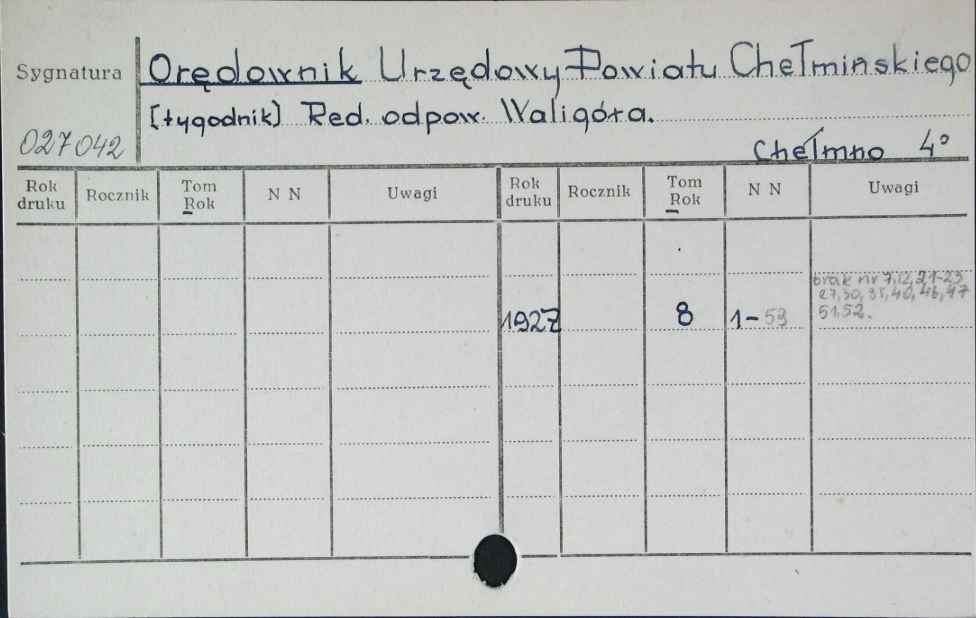 Sygnatura
Orędownik Urzędowy Powiatu Chełmińskiego
[tygodnik] Red. odpow. Waligóra.
027042
Chełmno 4°
Rok druku Rocznik Tom Rok N N Uwagi Rok druku Rocznik Tom Rok N N Uwagi
brak nr 7,12,21-23
27,30,35,40,46,47
1927 8 1-53 51,52.